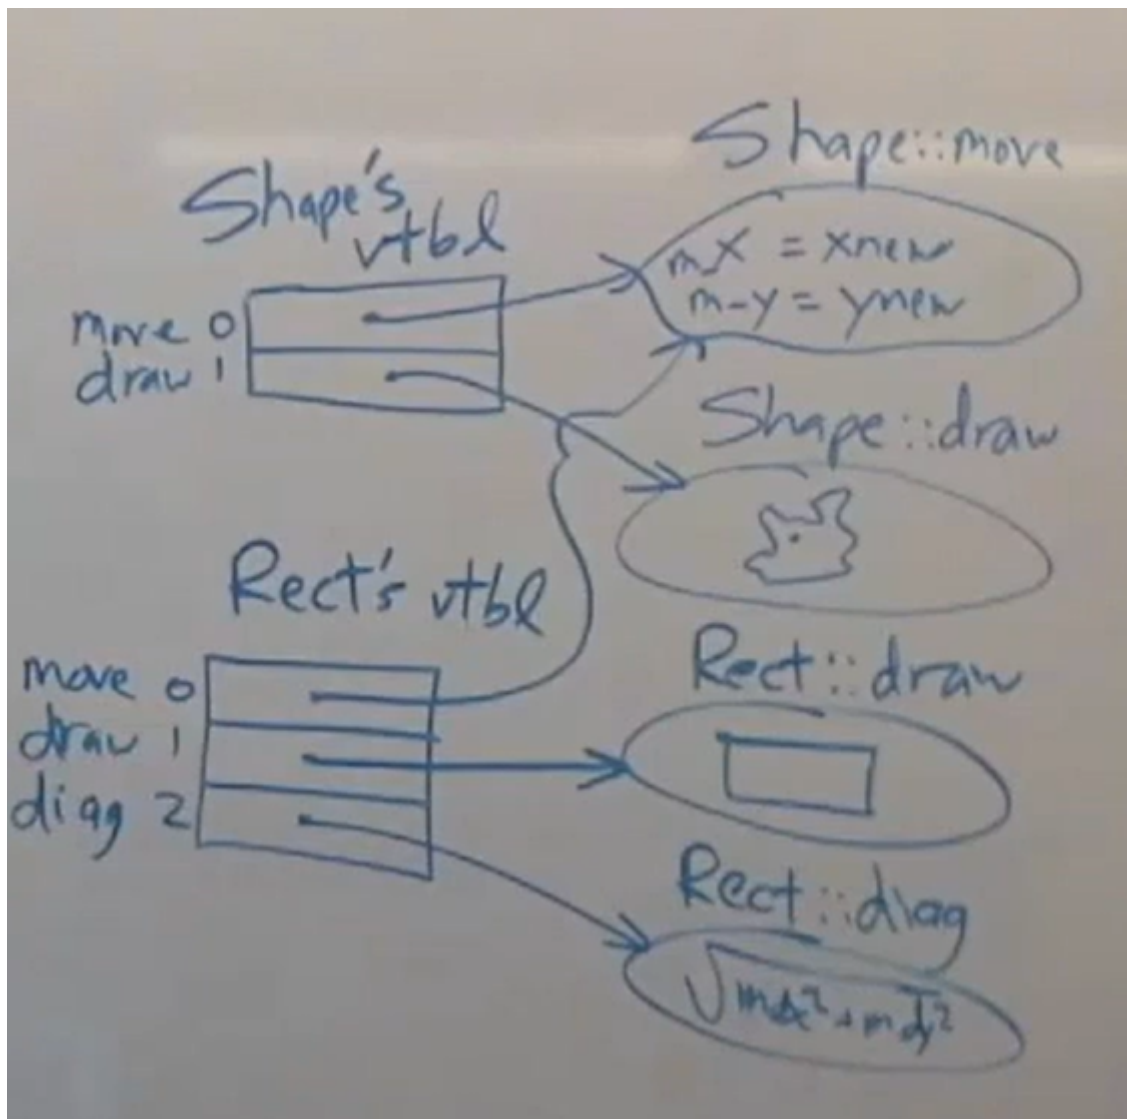 Shape's
vtbl
move 0
draw 1
Shape::move
m_X = xnew
m_y = ynew
Shape::draw
Rect's vtbl
move 0
draw 1
diag 2
Rect::draw
Rect::diag
√mdx²+mdy²